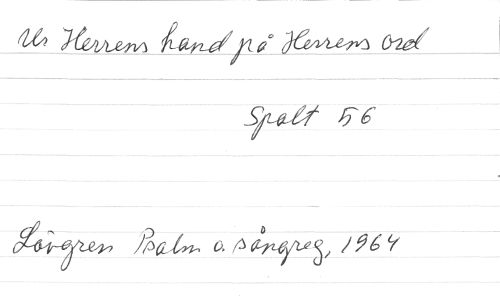 Ur Herrens hand på Herrens ord
Spalt 56
Lövgren Psalm o. sångreg, 1964